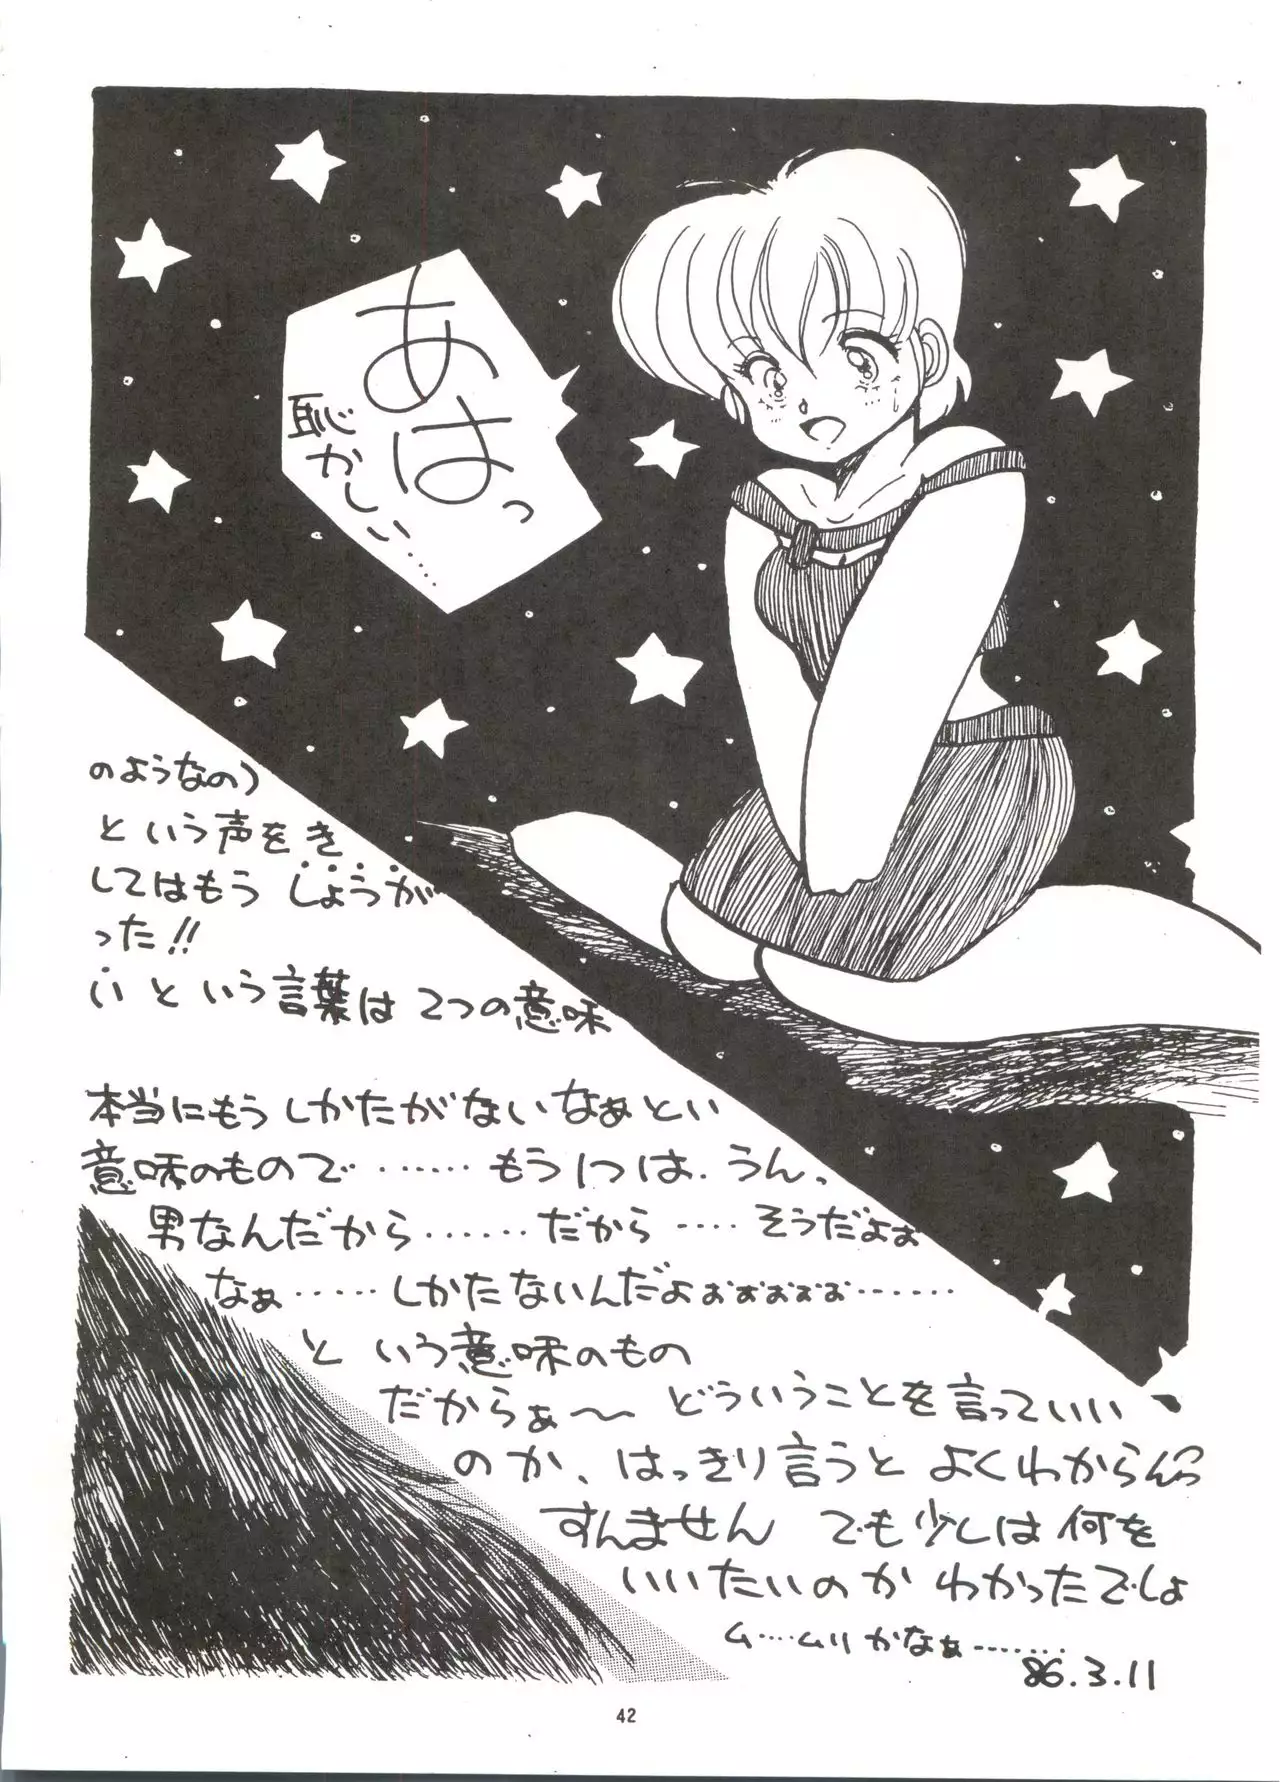 あはっ
恥かしい……
のようなの)
という声をき
してはもう しょうが
った!!
い という言葉は 2つの意味
本当にもう しかたがないなぁとい
意味のもので……… もう1つは．うん、
男なんだから……… だから …… そうだよぉ
なぁ…… しかたないんだよぉぉぉぉぉ………
という意味のもの
だからぁ～ どういうことを言っていい
のか、はっきり言うと よくわからんっ
すんません でも少しは何を
いいたいのか わかったでしょ
ム…‥ムリ かなぁ………
86.3.11
42